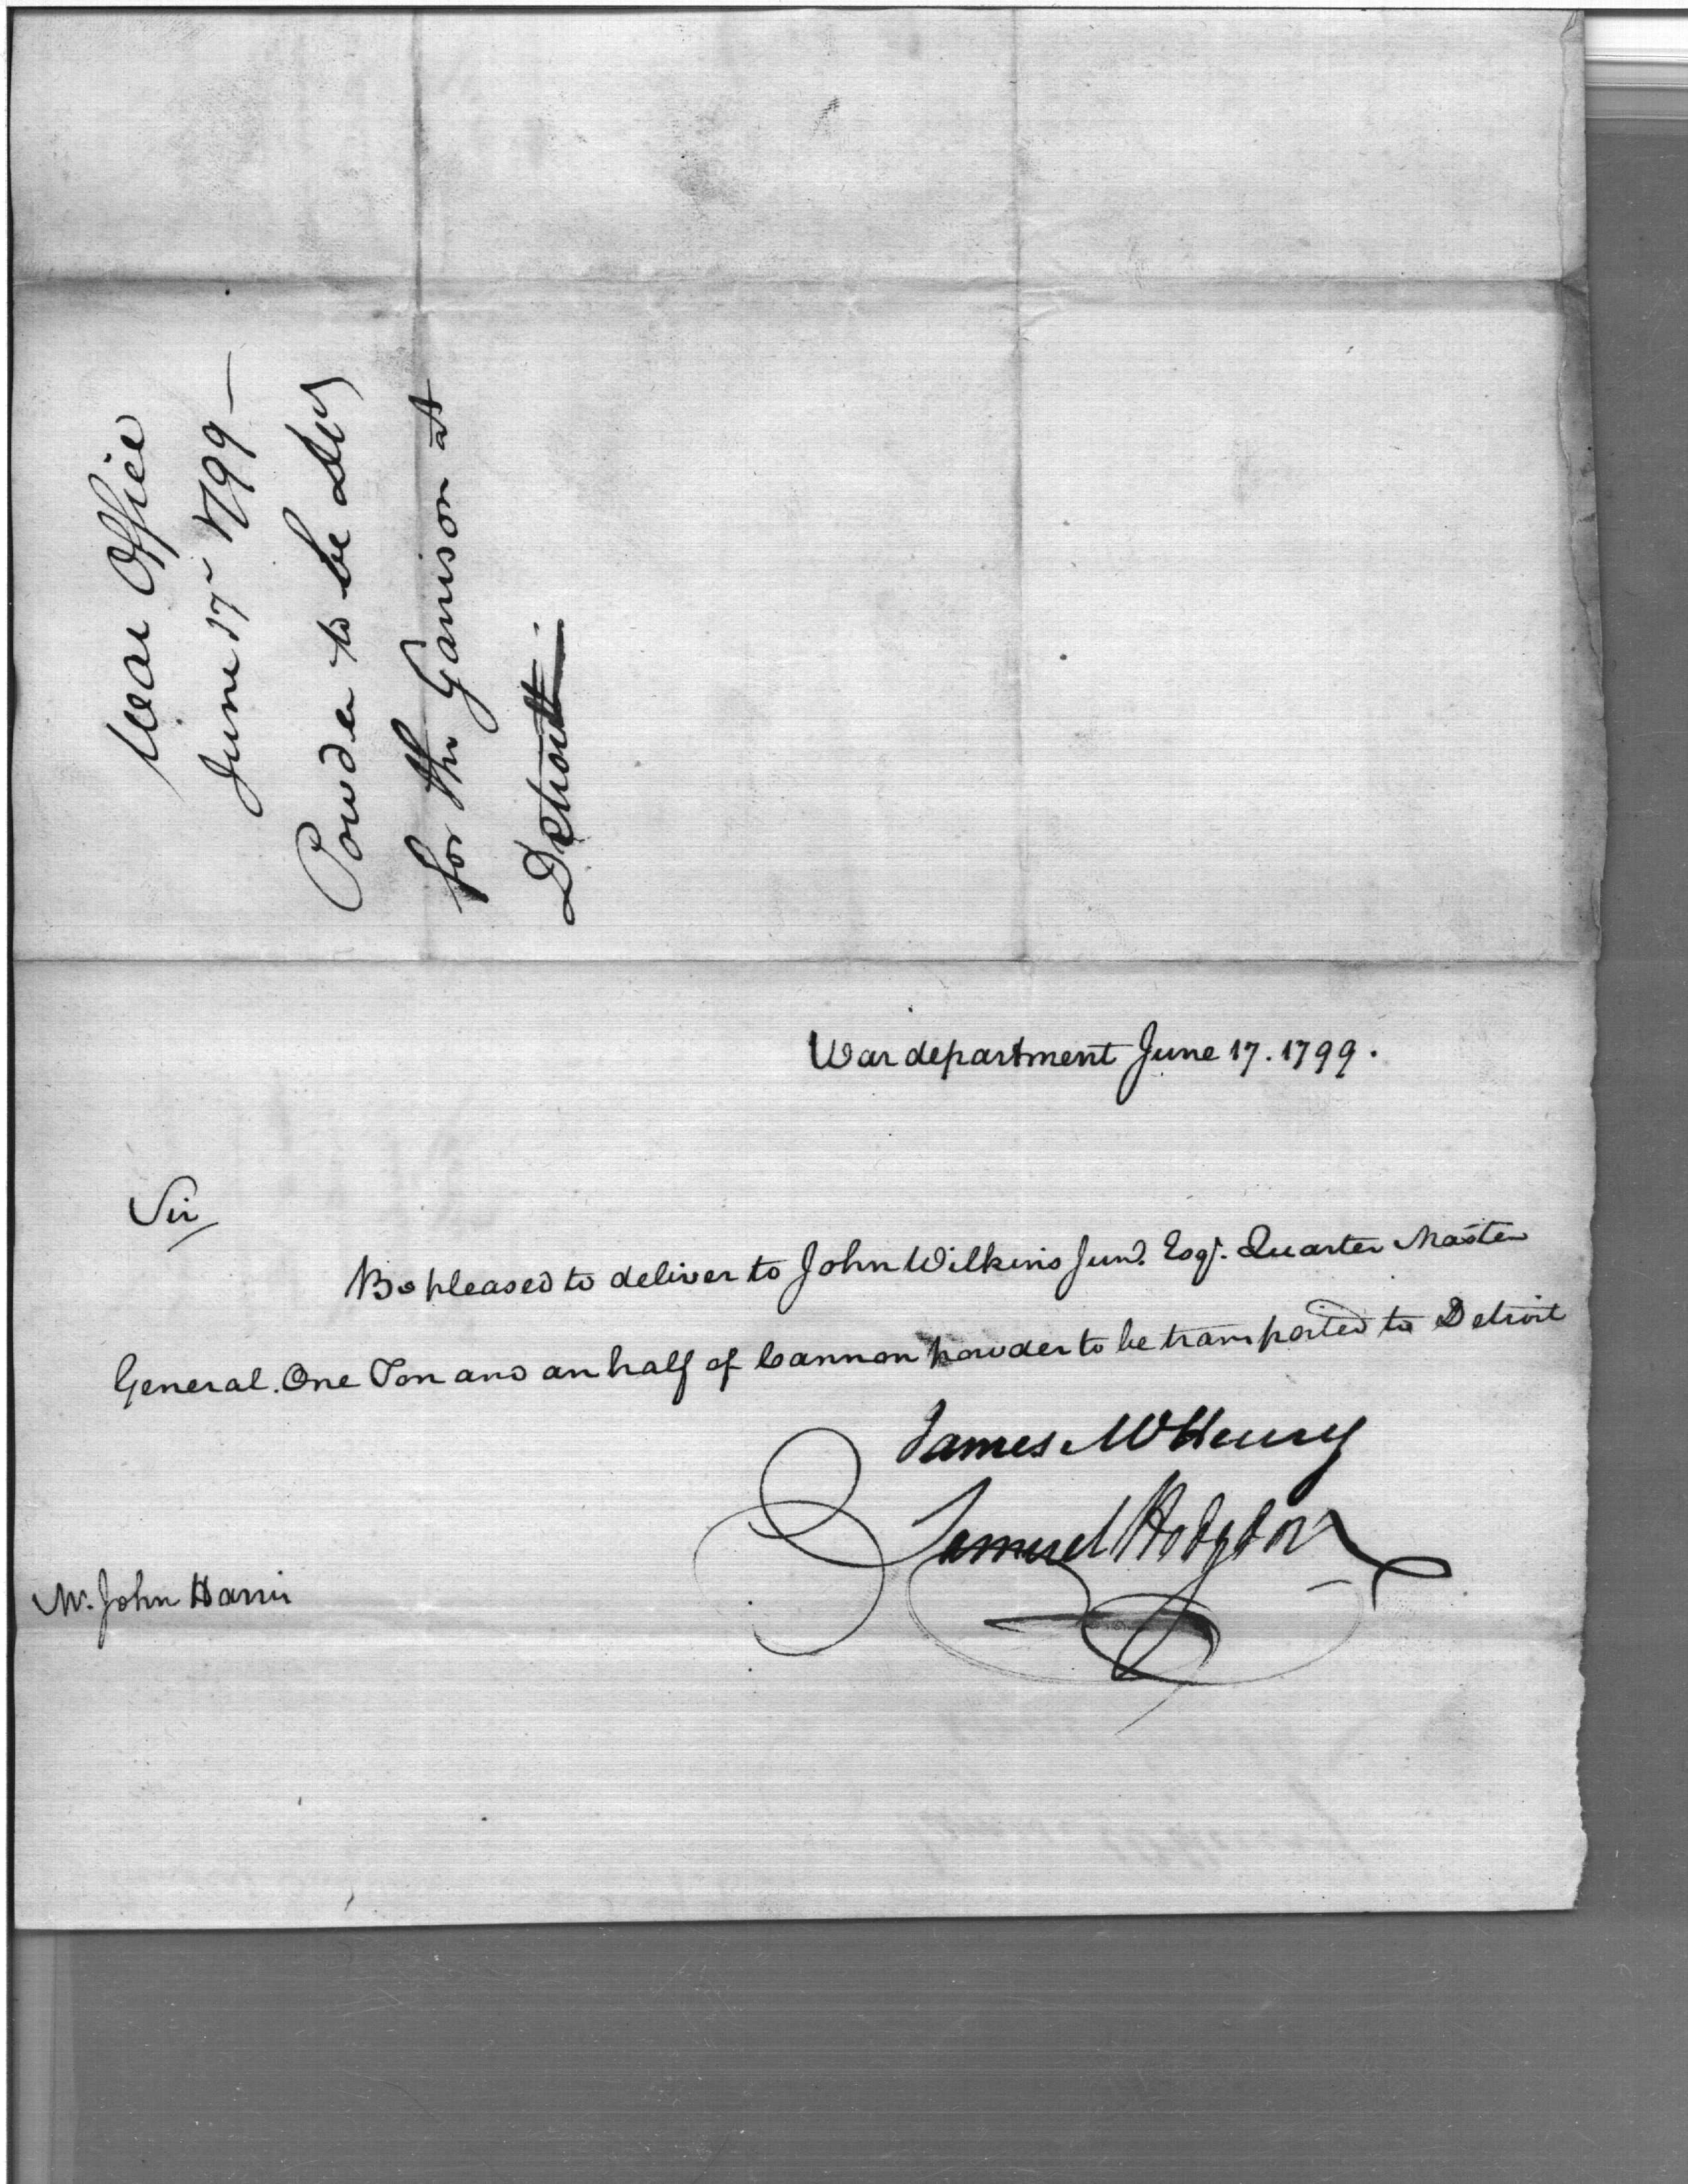 War Office
June 17 1799 —
Powder to be
for the Garrison at
Detroitt
War department June 17. 1799.
Sir
Be pleased to deliver to John Wilkins Junr. Esqr. Quarter Master
General. One Ton and an half of Cannon powder to be transported to Detroit
James McHenry
Samuel Hodgdon
Mr. John Harris